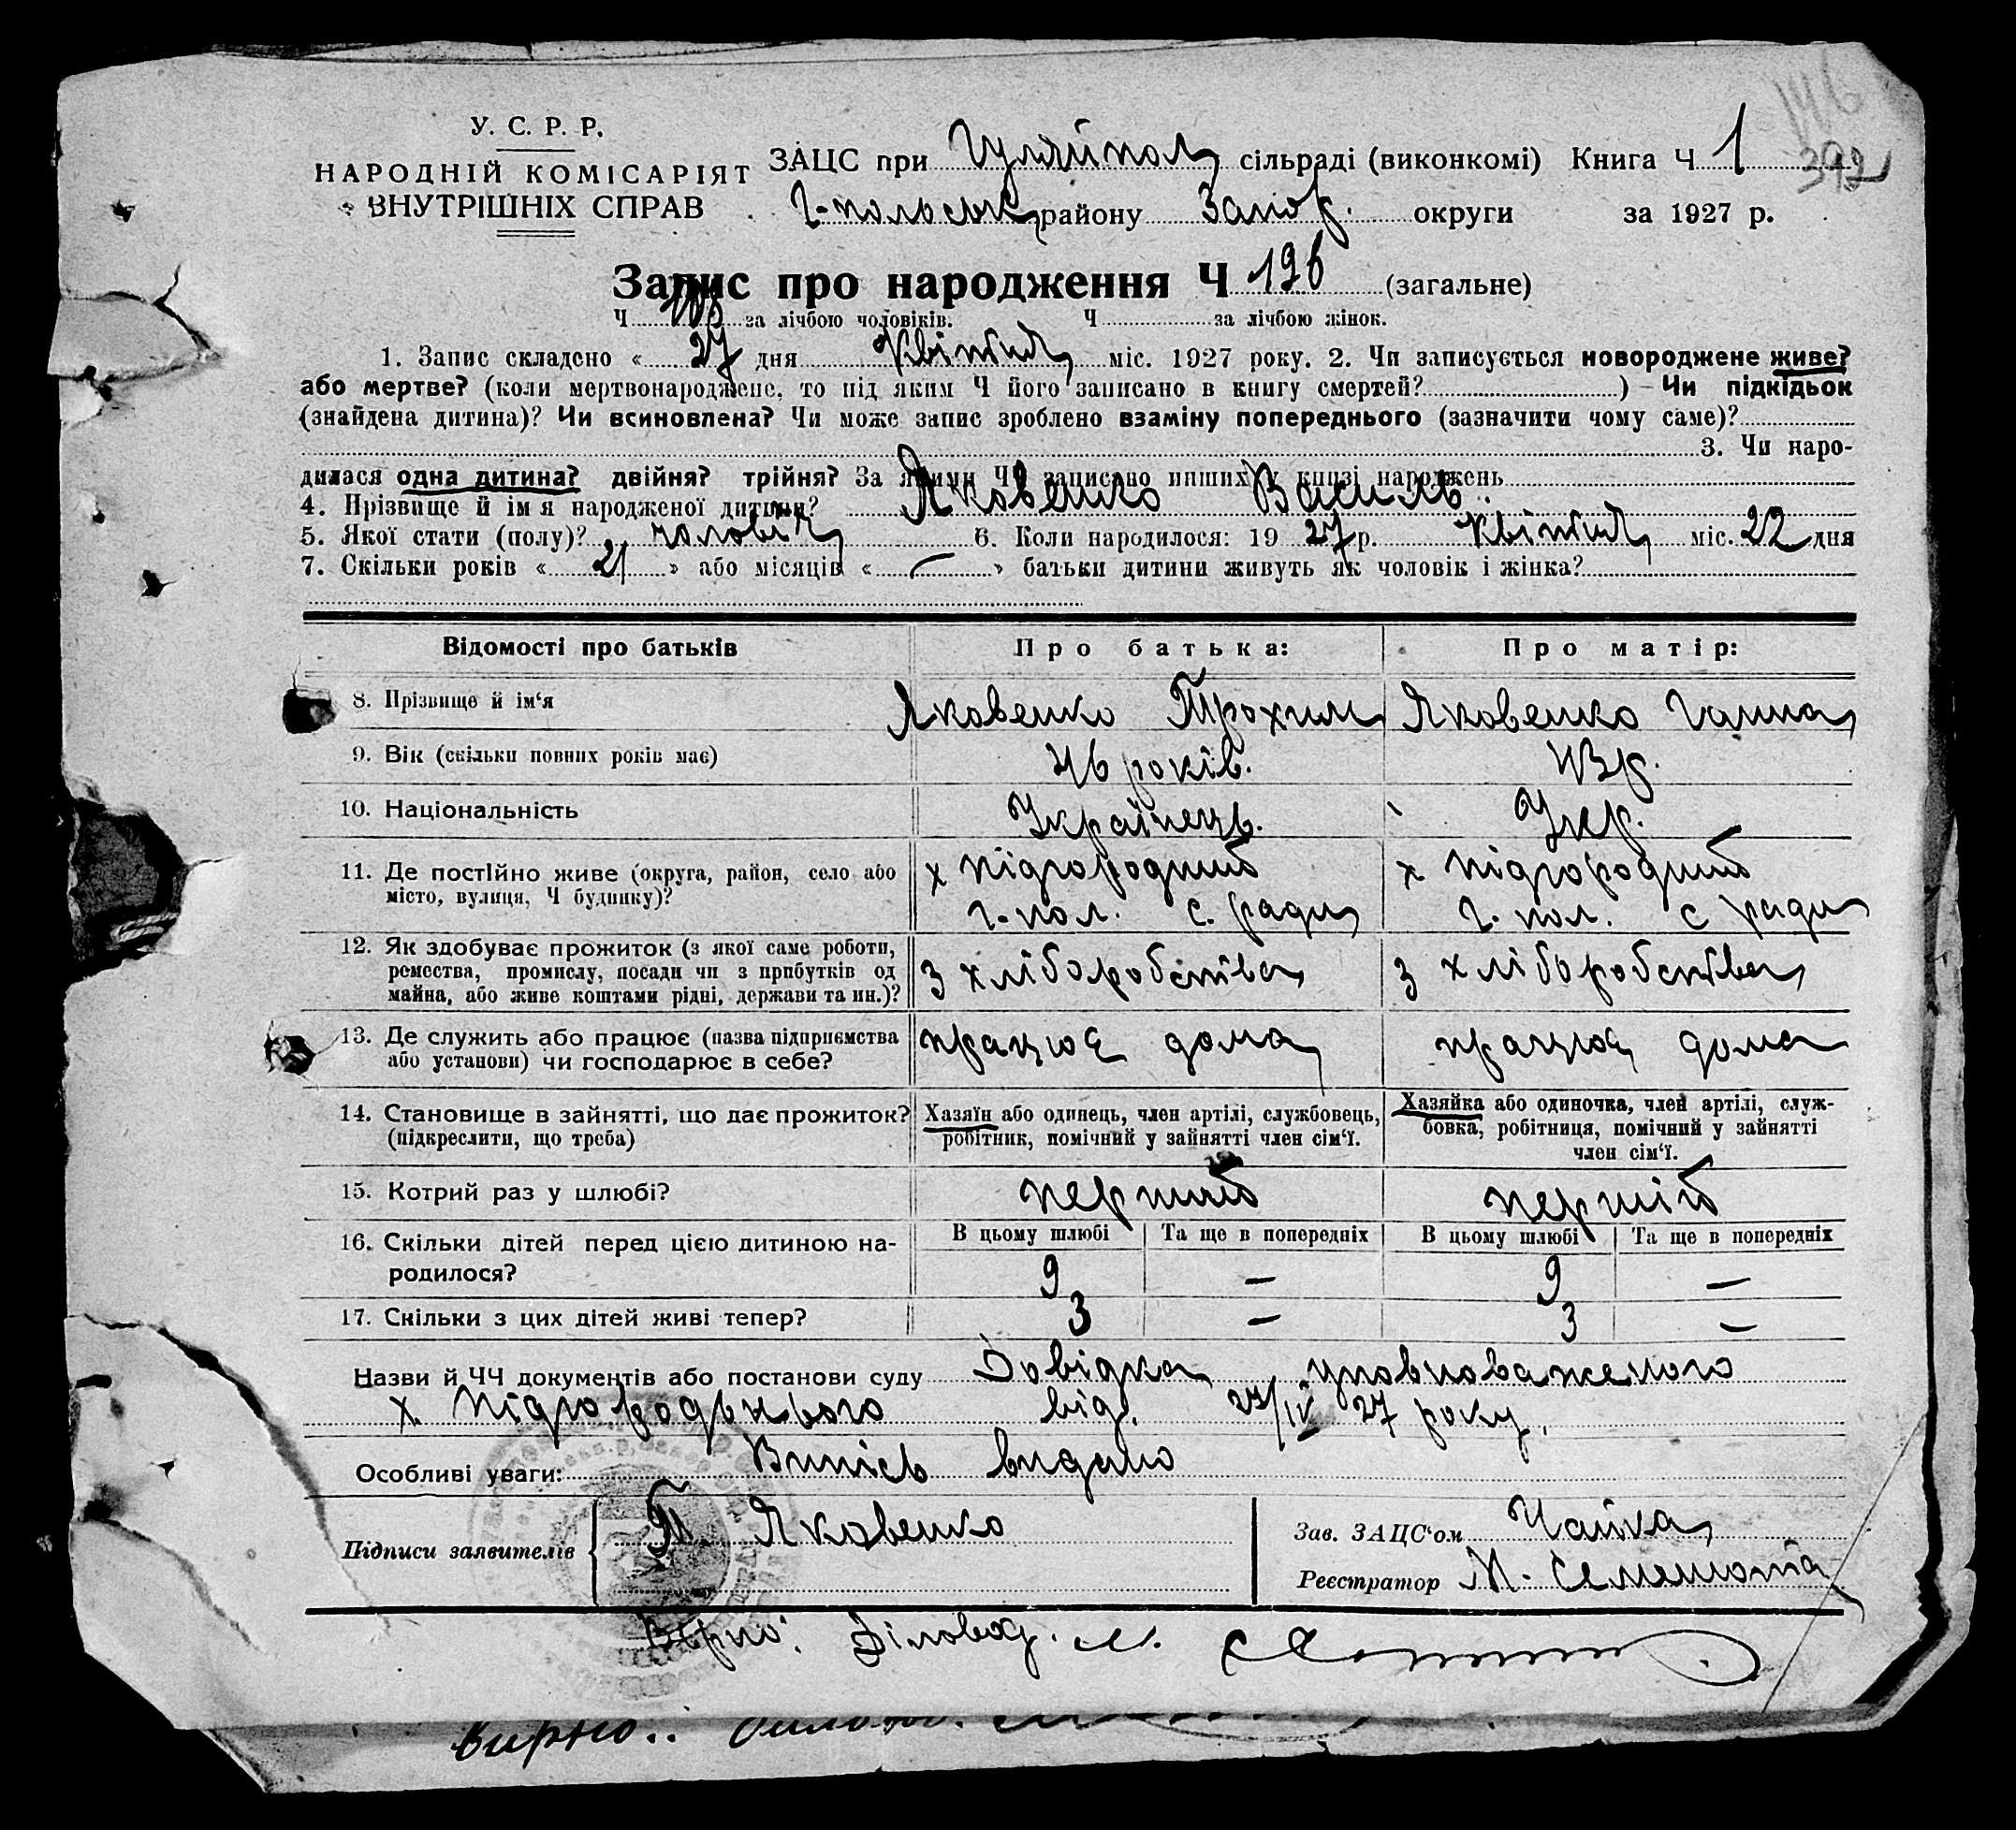 146
392
У. С. Р. Р.
НАРОДНІЙ КОМІСАРІЯТ
ВНУТРІШНІХ СПРАВ
ЗАЦС при Гуляйпол сільраді (виконкомі) Книга Ч 1
Г-польськ району Запор. округи за 1927 р.
Запис про народження Ч 196 (загальне)
Ч 108 за лічбою чоловіків. Ч за лічбою жінок.
1. Запис складено « 27 дня Квітня міс. 1927 року. 2. Чи записується новороджене живе?
або мертве? (коли мертвонароджене, то під яким Ч його записано в книгу смертей? ) – Чи підкідьок
(знайдена дитина)? Чи всиновлена? Чи може запис зроблено взаміну попереднього (зазначити чому саме)?
3. Чи наро-
дилася одна дитина? двійня? трійня? За якими ЧЧ записано инших у книзі народжень
4. Прізвище й ім'я народженої дитини? Яковенко Василь.
5. Якої стати (полу)? чоловіч 6. Коли народилося: 19 27 р. Квітня міс. 22 дня
7. Скільки років « 21 » або місяців « — » батьки дитини живуть як чоловік і жінка?
Відомості про батьків Про батька: Про матір:
8. Прізвище й ім'я Яковенко Трохим Яковенко Ганна
9. Вік (скільки повних років має) 46 років. 43 р.
10. Національність Українець. Укр.
11. Де постійно живе (округа, район, село або х Підгородний х Підгородний
місто, вулиця, Ч будинку)? Г-пол. с. ради Г-пол. с ради
12. Як здобуває прожиток (з якої саме роботи,
ремества, промислу, посади чи з прибутків од з хліборобства з хліборобства
майна, або живе коштами рідні, держави та ин.)?
13. Де служить або працює (назва підприємства працює дома працює дома
або установи) чи господарює в себе?
14. Становище в зайнятті, що дає прожиток? Хазяїн або одинець, член артілі, службовець, Хазяйка або одиночка, член артілі, служ-
(підкреслити, що треба) робітник, помічний у зайнятті член сім'ї. бовка, робітниця, помічний у зайнятті
член сім'ї.
15. Котрий раз у шлюбі? перший перший
В цьому шлюбі Та ще в попередніх В цьому шлюбі Та ще в попередніх
16. Скільки дітей перед цією дитиною на-
родилося? 9 — 9 —
17. Скільки з цих дітей живі тепер? 3 — 3 —
Назви й ЧЧ документів або постанови суду Довідка уповноваженого
х. Підгородьнього від. 27/IV 27 року.
Особливі уваги: Випісь видано
Підписи заявителів Т Яковенко
Зав. ЗАЦС'ом Чайка
Реєстратор М. Семенюта
Вірно: Діловод. М.
Вирно: